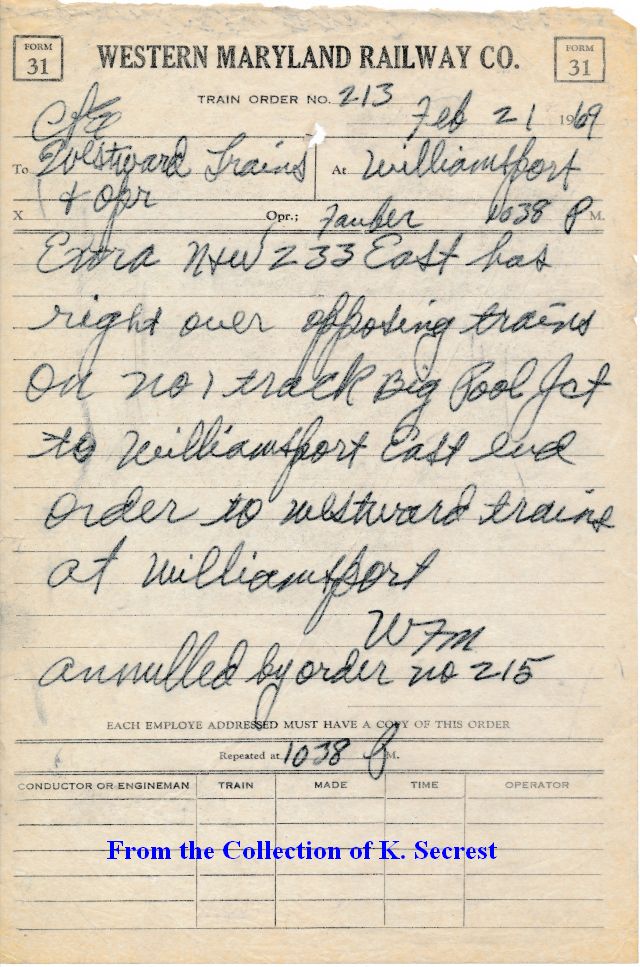 FORM 31 WESTERN MARYLAND RAILWAY CO. FORM 31
TRAIN ORDER NO. 213
Feb 21 1969
To Westward Trains At Williamsport
& Opr
X Opr.; Fauber 1038 P M.
Extra N&W 233 East has
right over opposing trains
on no 1 track Big Pool Jct
to Williamsport East end
order to westward trains
at Williamsport
WFM
annulled by order no 215
EACH EMPLOYE ADDRESSED MUST HAVE A COPY OF THIS ORDER
Repeated at 1038 P M.
CONDUCTOR OR ENGINEMAN TRAIN MADE TIME OPERATOR
From the Collection of K. Secrest